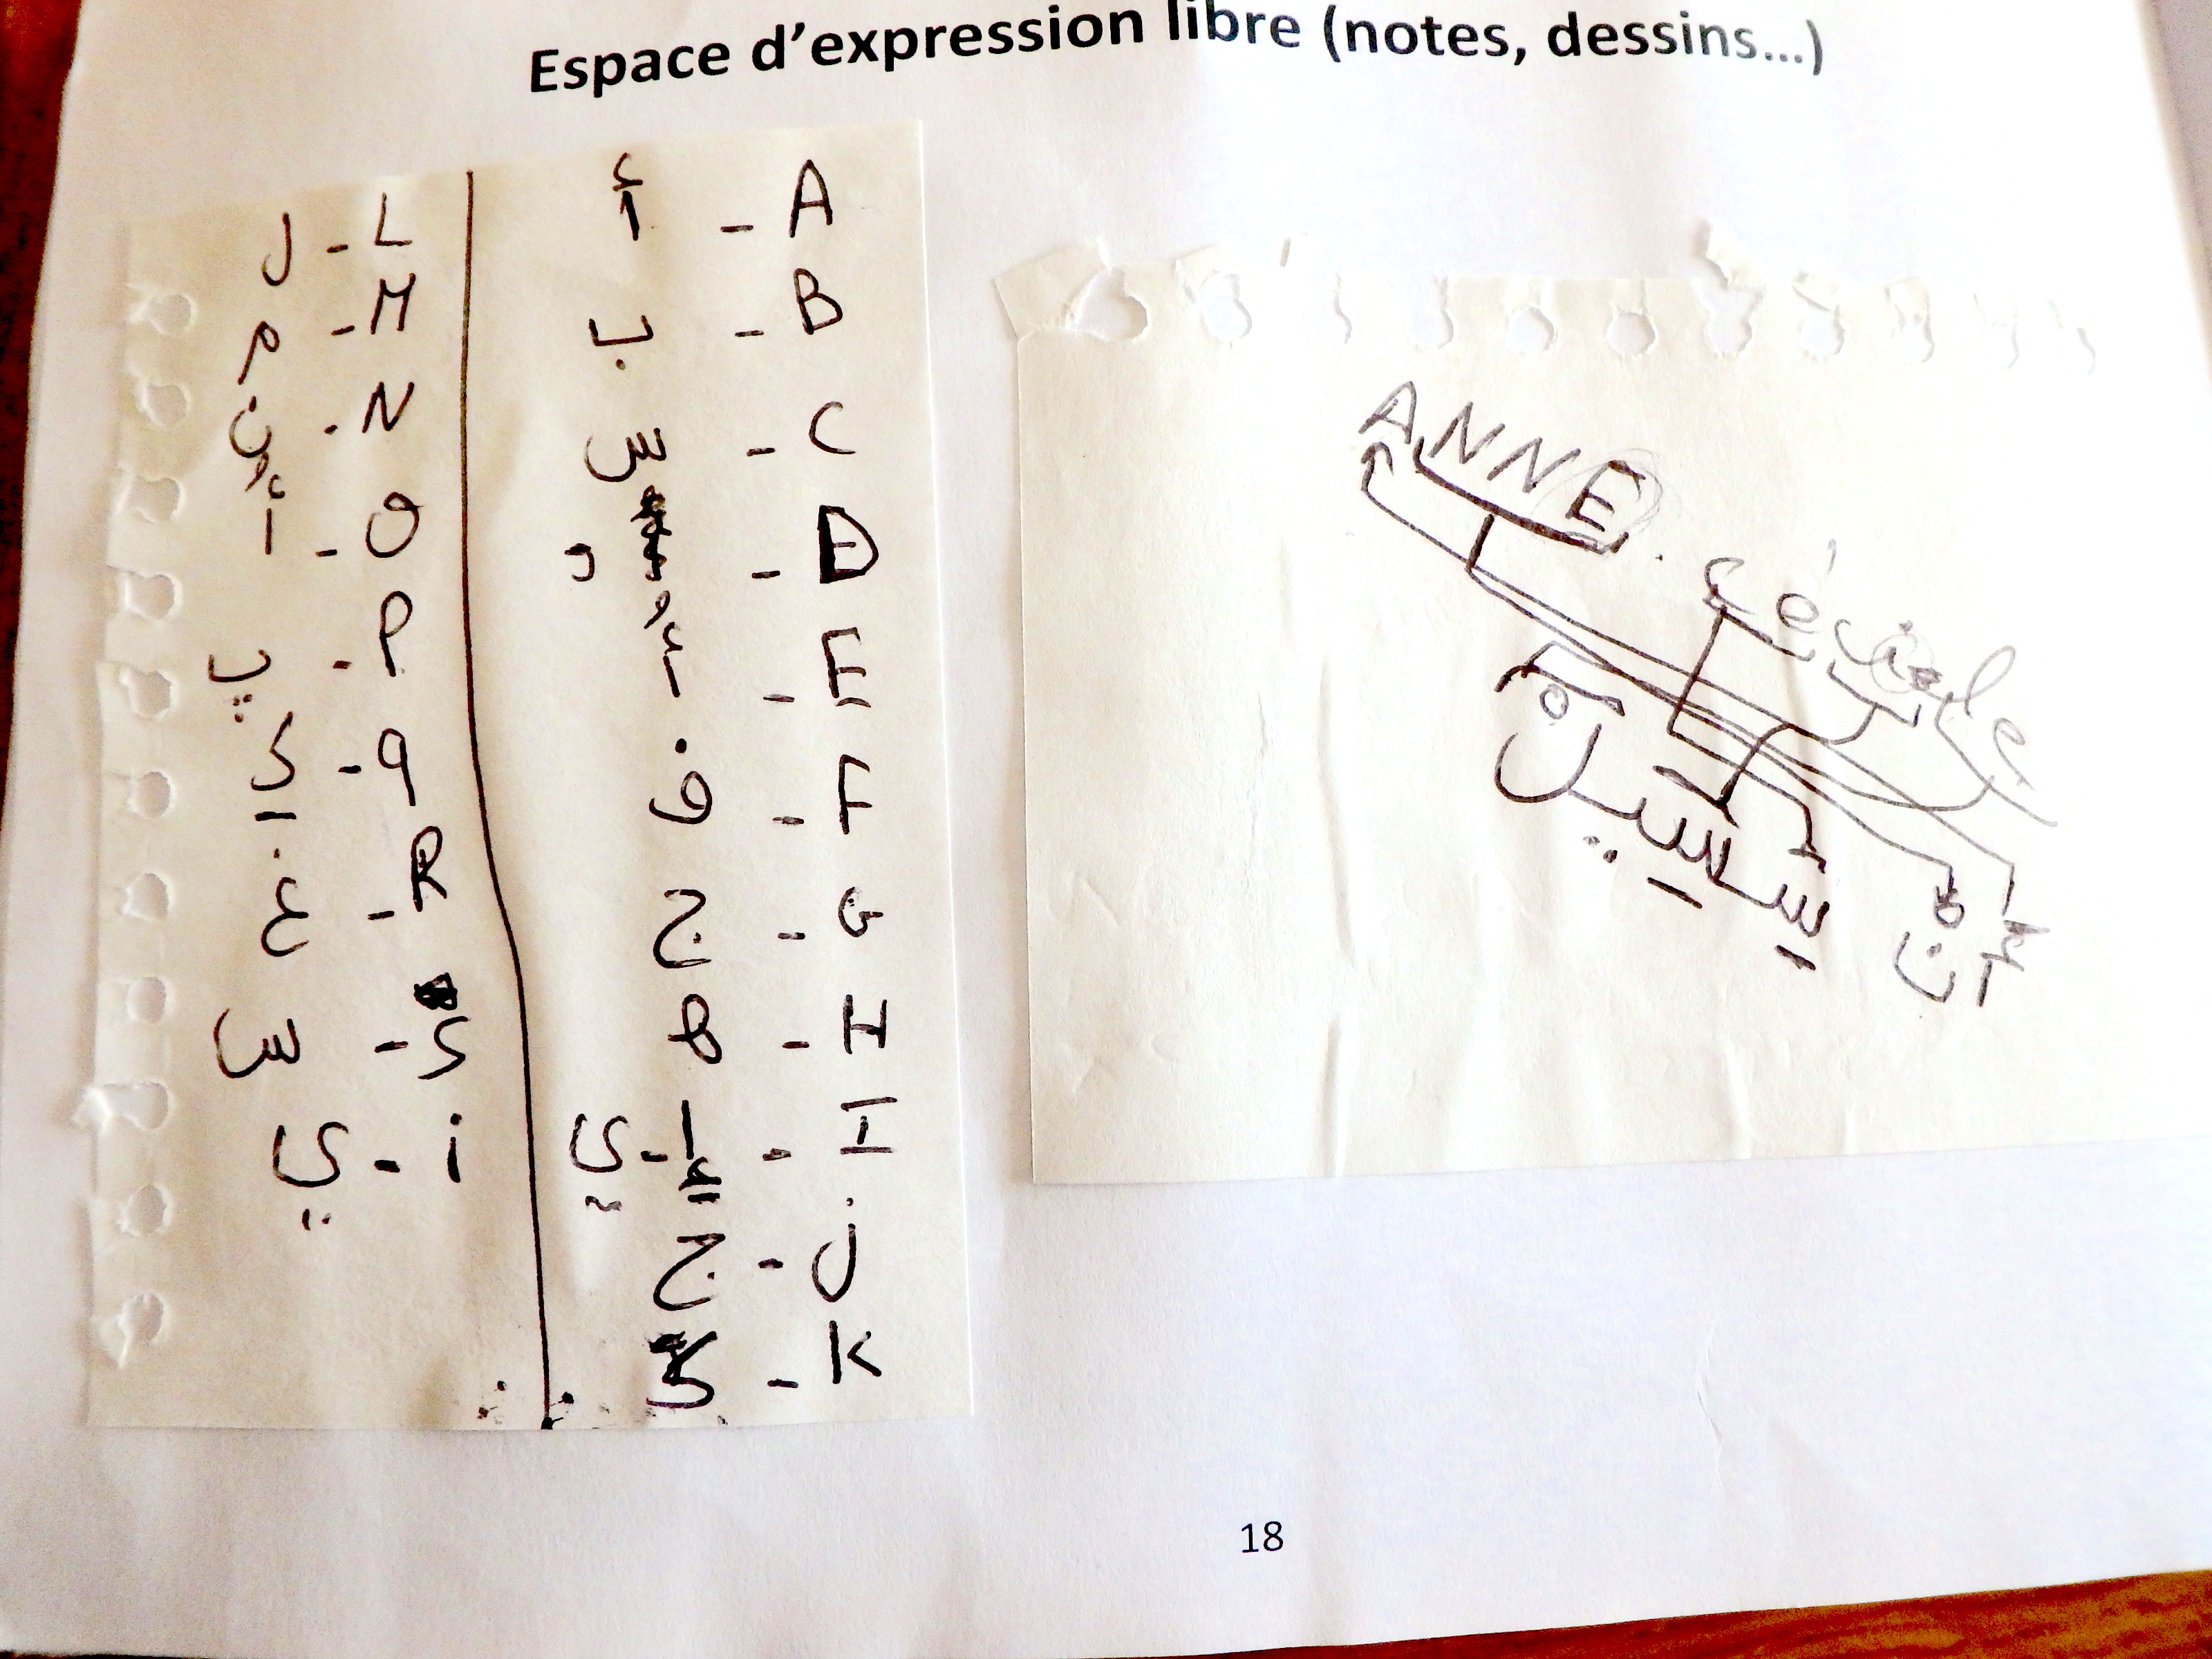 Espace d'expression libre (notes, dessins...)
A - أ
B - ب
C - س
D - د
E -
F - ف
G - ج
H - ه
I - ي
J - ج
K - ك
L - ل
M - م
N - ن
O - أُ
P - پ
q - ك
R - غ
S - س
i - ي
ANNE. Cécile
آن
سِسِيل
18